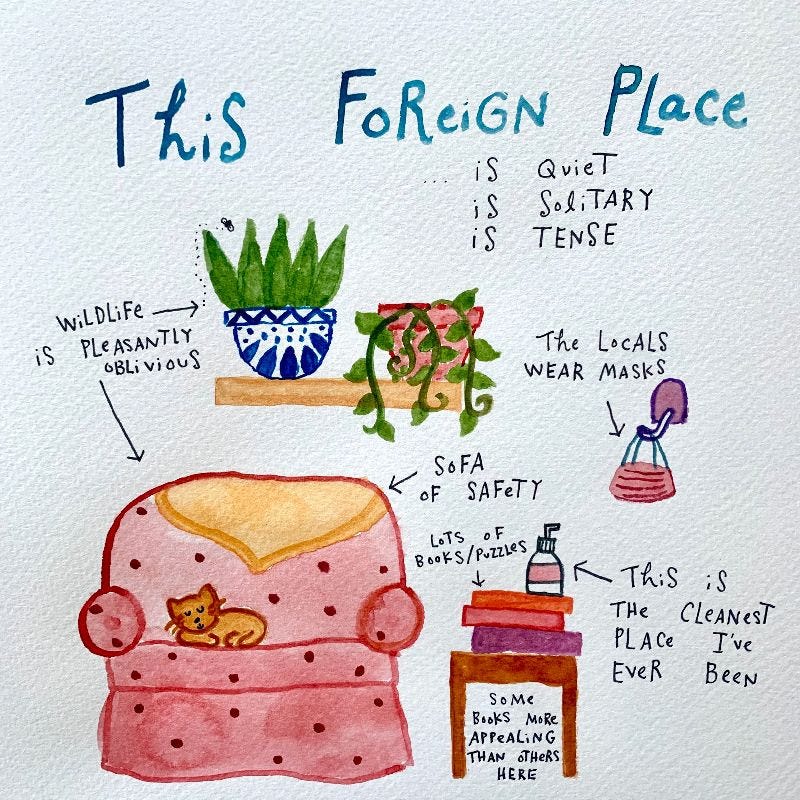 This FoReiGN Place
... iS QuieT
iS SoliTARY
iS TENSE
WiLDLiFe
iS PLeASANTLY
OBLiViOUS
The LoCALS
WEAR MASKS
SoFA
oF SAFeTY
LoTS oF
BOOKS/PuZZLES
ThiS iS
THE CLEANEST
PLACE I've
EVER BEEN
SoMe
BooKS MoRe
APPeALiNG
THAN oTHeRS
HERE